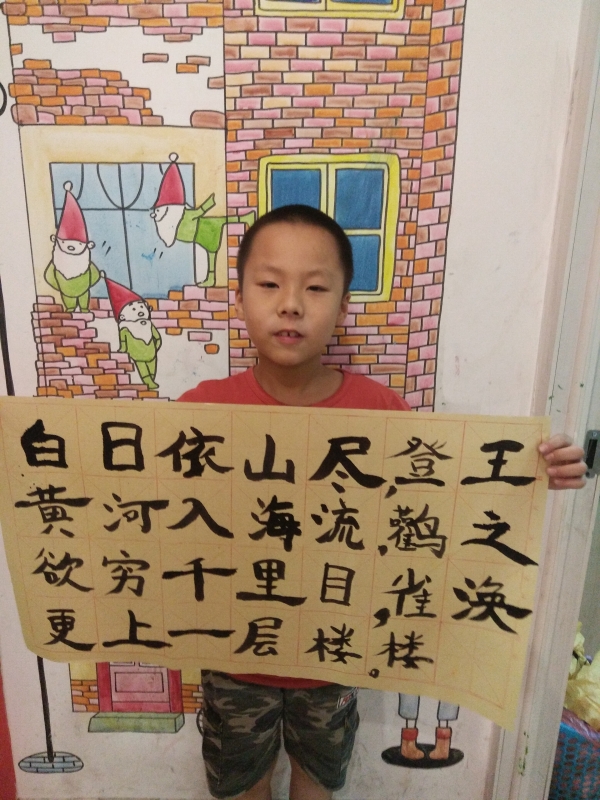 白日依山尽,
黄河入海流,
欲穷千里目,
更上一层楼。
登鹳雀楼
王之涣